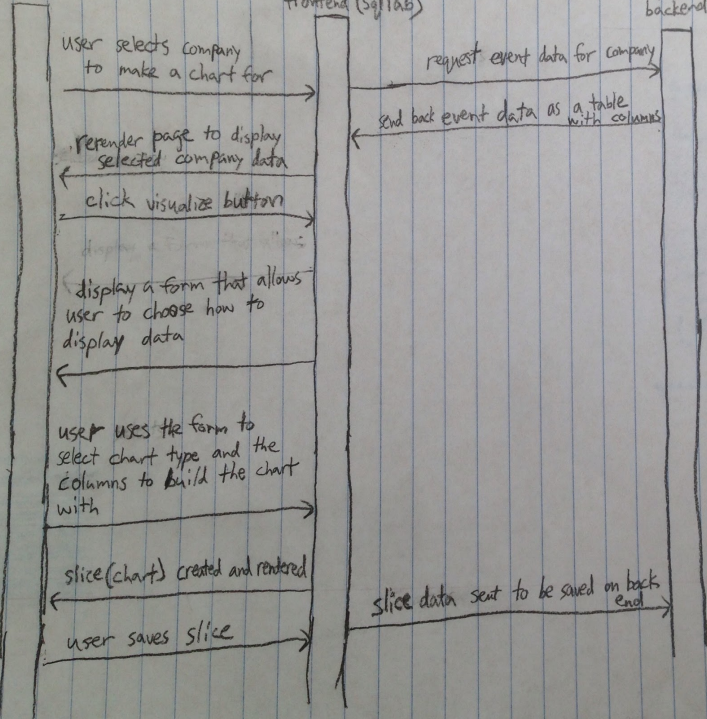 frontend (sqllab)
backend
user selects company
to make a chart for
request event data for company
send back event data as a table
with columns
rerender page to display
selected company data
click visualize button
display a form that allows
user to choose how to
display data
user uses the form to
select chart type and the
columns to build the chart
with
slice(chart) created and rendered
slice data sent to be saved on back
end
user saves slice